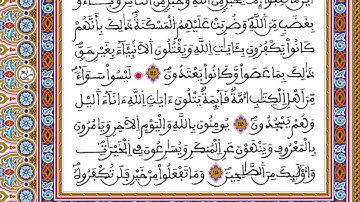 بِغَضَبٍ مِّنَ ٱللَّهِ وَضُرِبَتْ عَلَيْهِمُ ٱلْمَسْكَنَةُ ذَٰلِكَ بِأَنَّهُمْ
كَانُوا۟ يَكْفُرُونَ بِـَٔايَٰتِ ٱللَّهِ وَيَقْتُلُونَ ٱلْأَنۢبِيَآءَ بِغَيْرِ حَقٍّ
ذَٰلِكَ بِمَا عَصَوا۟ وَّكَانُوا۟ يَعْتَدُونَ لَيْسُوا۟ سَوَآءً
مِّنْ أَهْلِ ٱلْكِتَٰبِ أُمَّةٌ قَآئِمَةٌ يَتْلُونَ ءَايَٰتِ ٱللَّهِ ءَانَآءَ ٱلَّيْلِ
وَهُمْ يَسْجُدُونَ يُؤْمِنُونَ بِٱللَّهِ وَٱلْيَوْمِ ٱلْءَاخِرِ وَيَامُرُونَ
بِٱلْمَعْرُوفِ وَيَنْهَوْنَ عَنِ ٱلْمُنكَرِ وَيُسَٰرِعُونَ فِى ٱلْخَيْرَٰتِ
وَأُو۟لَٰٓئِكَ مِنَ ٱلصَّٰلِحِينَ وَمَا تَفْعَلُوا۟ مِنْ خَيْرٍ فَلَن تُكْفَرُوهُ